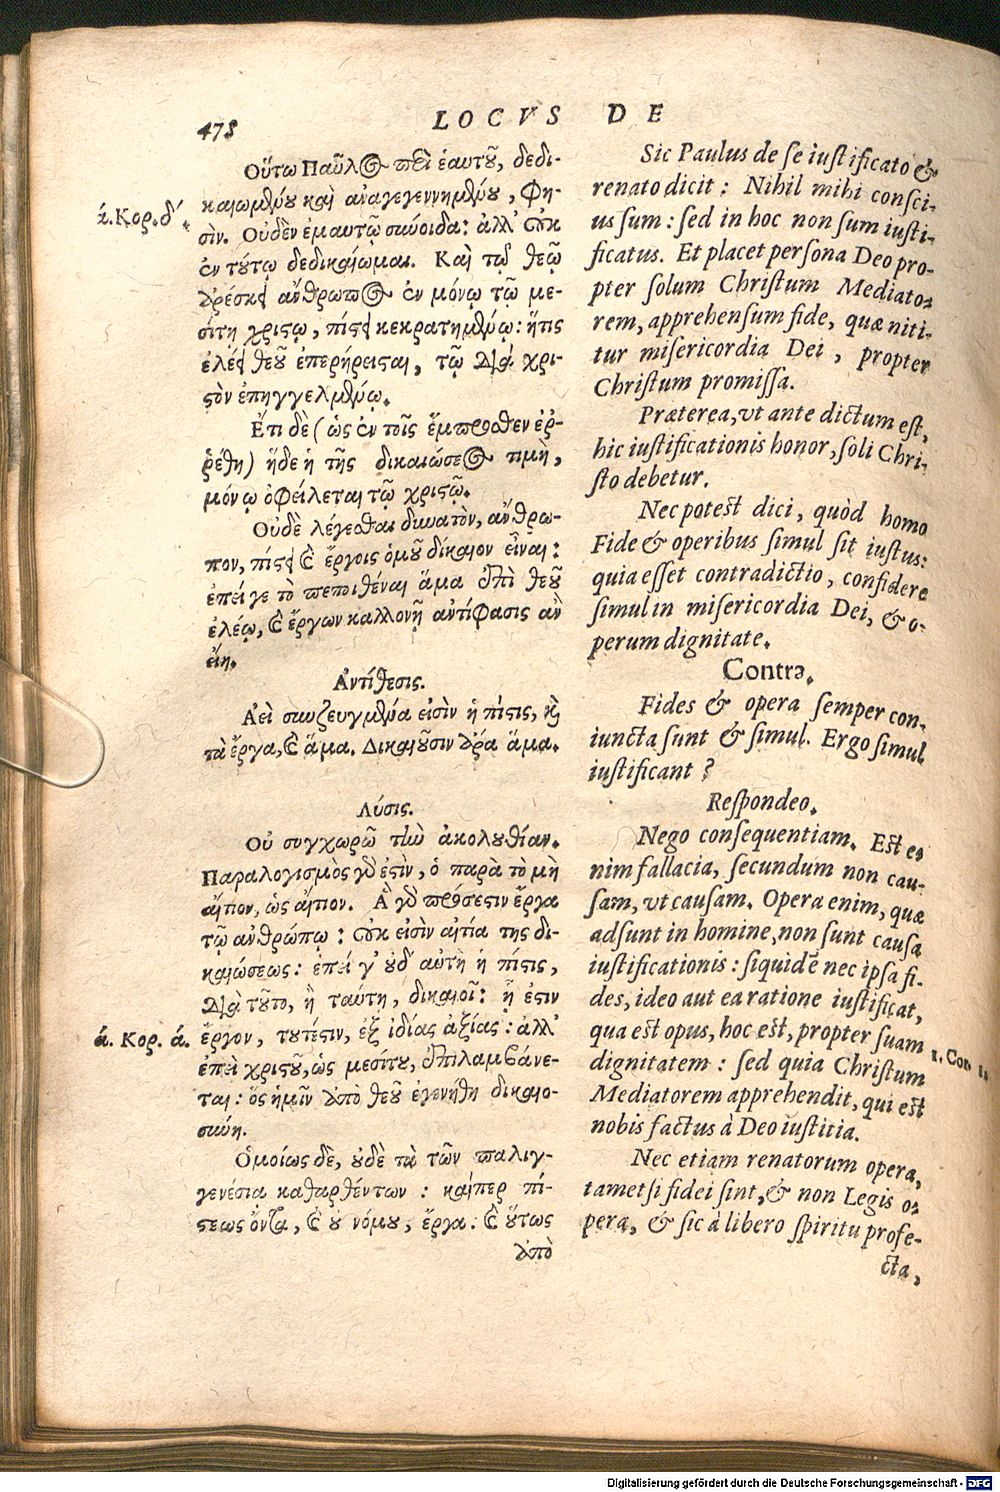 478
LOCVS DE
Οὕτω Παῦλος περὶ ἑαυτοῦ, δεδι-
καιωμένου καὶ ἀναγεγεννημένου, φη-
ά. Κορ. δ΄.
σὶν. Οὐδὲν ἐμαυτῷ σύνοιδα: ἀλλ' οὐκ
ἐν τούτῳ δεδικαίωμαι. Καὶ τῷ θεῷ
ἀρέσκει ἄνθρωπος ἐν μόνῳ τῷ με-
σίτῃ χριστῷ, πίστει κεκρατημένῳ: ἥτις
ἐλέει θεοῦ ἐπερήρεισται, τῷ διὰ χρι-
στὸν ἐπηγγελμένῳ.
Ἔτι δὲ (ὡς ἐν τοῖς ἔμπροσθεν ἐῤ-
ῥέθη) ἥδε ἡ τῆς δικαιώσεως τιμὴ,
μόνῳ ὀφείλεται τῷ χριστῷ.
Οὐδὲ λέγεσθαι δυνατὸν, ἄνθρω-
πον, πίστει καὶ ἔργοις ὁμοῦ δίκαιον εἶναι:
ἐπεί γε τὸ πεποιθέναι ἅμα ἐπὶ θεοῦ
ἐλέῳ, καὶ ἔργων καλλονῇ ἀντίφασις ἂν
εἴη.
Ἀντίθεσις.
Ἀεὶ συνεζευγμένα εἰσὶν ἡ πίστις, καὶ
τὰ ἔργα, καὶ ἅμα. Δικαιοῦσιν ἄρα ἅμα.
Λύσις.
Οὐ συγχωρῶ τὴν ἀκολουθίαν.
Παραλογισμὸς γάρ ἐστὶν, ὁ παρὰ τὸ μὴ
αἴτιον, ὡς αἴτιον. Ἃ γὰρ πρόσεστιν ἔργα
τῷ ἀνθρώπῳ: οὐκ εἰσὶν αἰτία της δι-
καιώσεως: ἐπεί γ' οὐδ' αὐτὴ ἡ πίστις,
διὰ τοῦτο, ἢ ταύτῃ, δικαιοῖ: ᾗ ἐστιν
ά. Κορ. ά.
ἔργον, τουτέστιν, ἐξ ἰδίας ἀξίας: ἀλλ'
ἐπεὶ χριστοῦ, ὡς μεσίτου, ἐπιλαμβάνε-
ται: ὃς ἡμῖν ἀπὸ θεοῦ ἐγενήθη δικαιο-
σύνη.
Ὁμοίως δὲ, οὐδὲ τὰ τῶν παλιγ-
γενέσια καθαρθέντων: καίπερ πί-
στεως ὄντα, καὶ οὐ νόμου, ἔργα: καὶ οὕτως
ἀπὸ
Sic Paulus de se iustificato &
renato dicit: Nihil mihi consci-
us sum: sed in hoc non sum iusti-
ficatus. Et placet persona Deo pro-
pter solum Christum Mediato-
rem, apprehensum fide, quæ niti-
tur misericordia Dei, propter
Christum promissa.
Præterea, vt ante dictum est,
hic iustificationis honor, soli Chri-
sto debetur.
Nec potest dici, quòd homo
Fide & operibus simul sit iustus:
quia esset contradictio, confidere
simul in misericordia Dei, & o-
perum dignitate.
Contra.
Fides & opera semper con-
iuncta sunt & simul. Ergo simul
iustificant?
Respondeo.
Nego consequentiam. Est e-
nim fallacia, secundum non cau-
sam, vt causam. Opera enim, quæ
adsunt in homine, non sunt causa
iustificationis: siquidē nec ipsa fi-
des, ideo aut ea ratione iustificat,
qua est opus, hoc est, propter suam
1. Cor. 1.
dignitatem: sed quia Christum
Mediatorem apprehendit, qui est
nobis factus à Deo iustitia.
Nec etiam renatorum opera,
tametsi fidei sint, & non Legis o-
pera, & sic à libero spiritu profe-
cta,
Digitalisierung gefördert durch die Deutsche Forschungsgemeinschaft - DFG